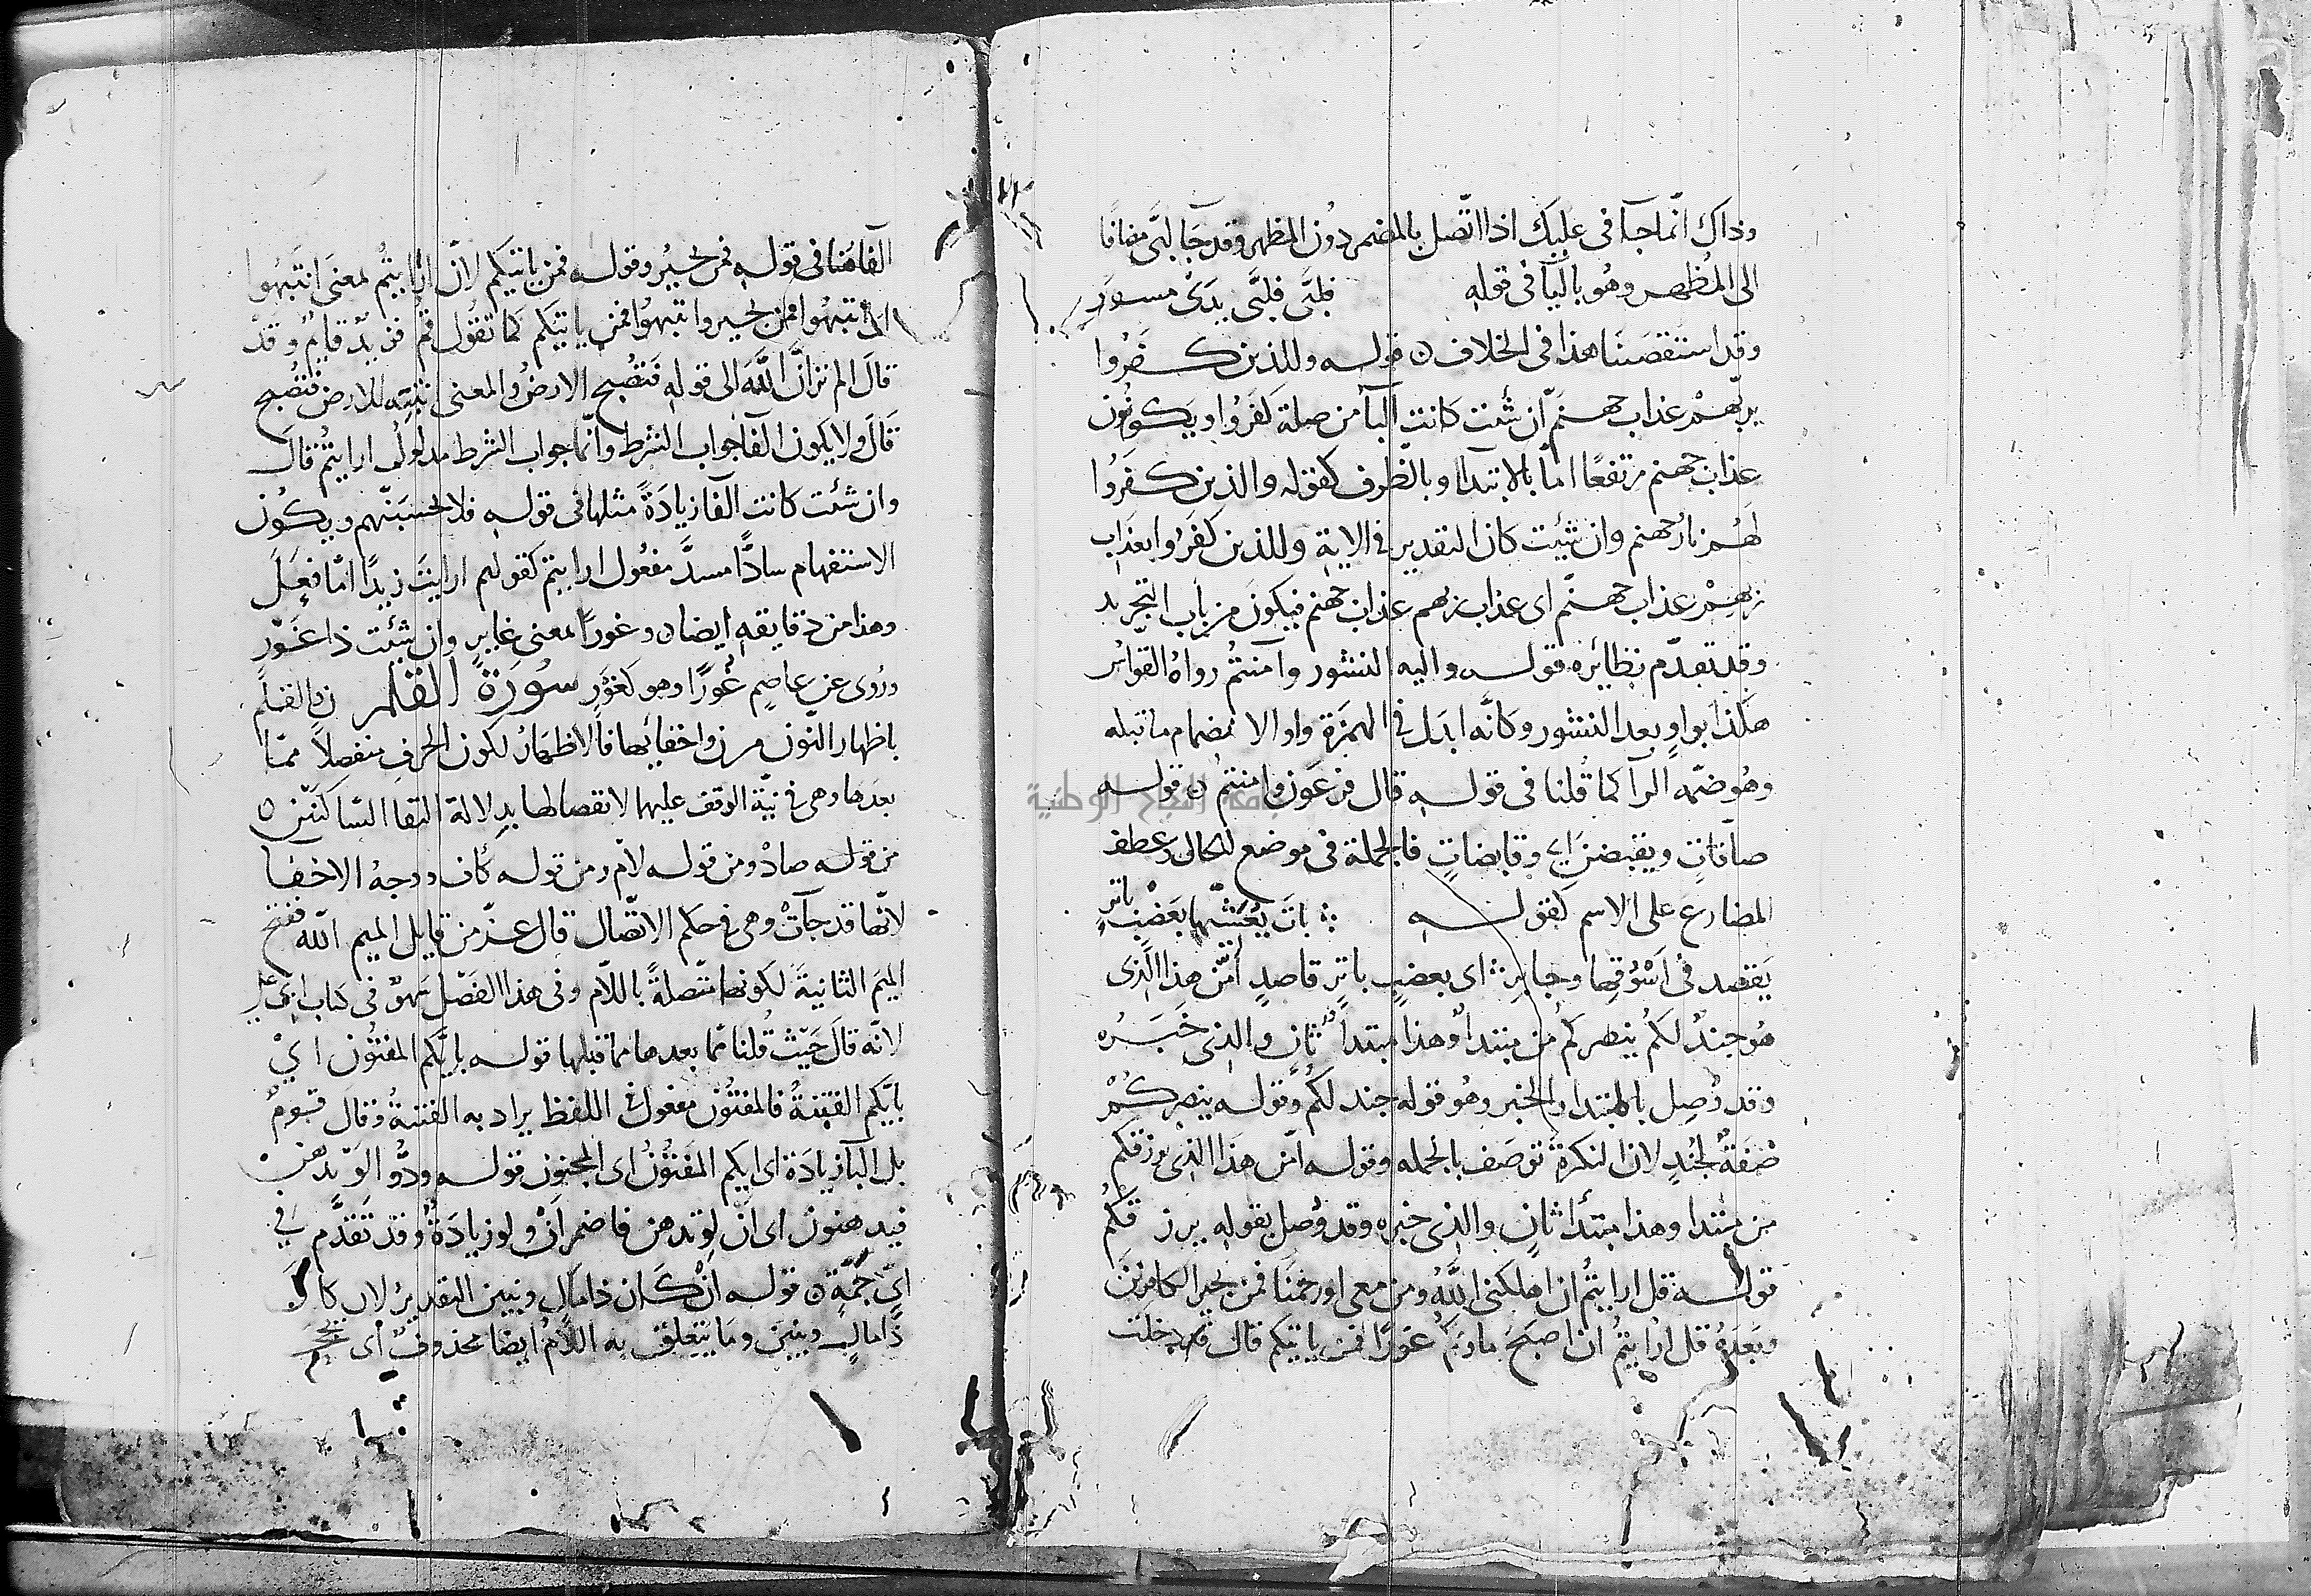 وذاك انّما جآ فى عليك اذا اتّصل بالمضمر دون المظهر وقد جآ لبَّى مضافا
الى المُظهر وهُو باليآ فى قوله فلبَّى فلبَّى يدَىْ مسوَر
وقد استقصينا هذا فى الخلاف ن قوله وللذين كفرُوا
بربّهمْ عذاب جهنّم ان شئت كانت البآ من صلة كفرُوا ويكون
عذاب جهنم مرتفعًا امّا بالابتدا او بالظرف كقوله والذين كفرُوا
لهُمْ نار جهنم وان شيئت كان التقدير فى الاية وللذين كفرُوا بعذاب
ربهمْ عذاب جهنّم اى عذاب ربهم عذاب جهنم فيكون من باب التجريد
وقد تقدّم نظائره قوله واليه النشور وآمنتُم رواهُ القواس
هكذا بواوٍ بعد النشور وكانّه ابدل فى الهمزة واو الانضمام ما قبله
وهُو ضمّه الرآ كما قُلنا فى قوله قال فرعون وامنتم ن قوله
صافّاتٍ ويقبضن اى وقابضاتٍ فالجملة فى موضع الحال وعطف
المضارع على الاسم كقوله باتَ يُعَشّيها بعَضْبٍ باترٍ
يَقصد فى اَسْوُقِها وجايرِ اى بعضبٍ باترٍ قاصدٍ أمّن هذا الّذى
هُو جندٌ لكُم ينصركم من مبتدأ وهذا مبتدأ ثانٍ والذى خبَرُه
وقد وُصِل بالمبتدا والخبر وهُو قوله جند لكُم وقوله ينصركُمْ
صفةٌ لجُندٍ لان النكرةَ توصَف بالجمله وقوله امّن هذا الذى يرزقكم
من مبتدا وهذا مبتدأ ثانٍ والذى خبره وقد وُصل بقوله يرزقكمُ
قوله قل ارايتُم ان اهلكنى اللّه ومن معى او رحمنَا فمن يجير الكافرينَ
وبعدهُ قل ارايتُم ان اصبَحَ ماؤكم غورًا فمن ياتيكم قال دخلت
الفا هنا فى قوله فمن يجيرُ وقوله فمن ياتيكم لانّ ارايتُم لمعنى انتبهُوا
اى انتبهُوا فمن يجير وانتبهُوا فمن ياتيكم كما تقُول قُم فزيدٌ قايمٌ وقد
قالَ الم تر انّ اللّه الى قوله فتصُبح الارضُ والمعنى تنبّه للارض فتُصُبح
قال ولا يكون الفا جواب الشرط وانّما جواب الشرط مدلُولُ ارايتُم قال
وان شئت كانت الفا زيادَةً مثلها فى قوله فلا تحسبَنّهم ويكُون
الاستفهام سادًّا مسدَّ مفعُول ارايتم كقولهم ارايتَ زيدًا ما فعَلَ
وهذا من دقايقه ايضا ن وغوراً لمعنى غايرٍ وان شئت ذا غَوْرٍ
ورُوى عن عاصمٍ غُورًا وهو كغَوْرٍ سُورَة القلم ن والقلمِ
باظهار النّون من ن واخفائها فالاظهارُ لكون الحرفِ منفصلاً ممّا
بعدَها وهى فى نيّة الوقف عليها لانقصاطها بدلالة التقا السّاكنَيْن ن
من قوله صادْ ومن قوله لاْم ومن قوله كاف ووجهُ الاخفَا
لانّها قد جآتْ وهى فى حكم الاتّصال قال عزّ من قايل الميم الله ففتح
الميمَ الثانيةَ لكونها متّصلةً باللاّم وفى هذا الفصْل سَهوٌ فى كتاب ابى على
لانّه قالَ حَيْث قُلنا ممّا بعدها ممّا قبلها قوله بايّكم المفتُون اىْ
بايّكم الفتنةُ فالمفتُون مفعول فى اللفظ يراد به الفتنةُ وقال قومٌ
بل البآ زيادَة اى ايكم المفتُونُ اى المجنون قوله ودُّوا لَوْ تدْهنُ
فيدهنون اى اَنْ لو تدهن فاضمر اَنْ ولو زيادَةٌ وقد تَقدَّم فى
قوله اَنْ كان ذا مالٍ وبنين التقديرُ لان كا نَ
ذا مالٍ وبنينَ وما يتعلق به اللامُ ايضا محذوفٌ اى
جامعة النجاح الوطنية